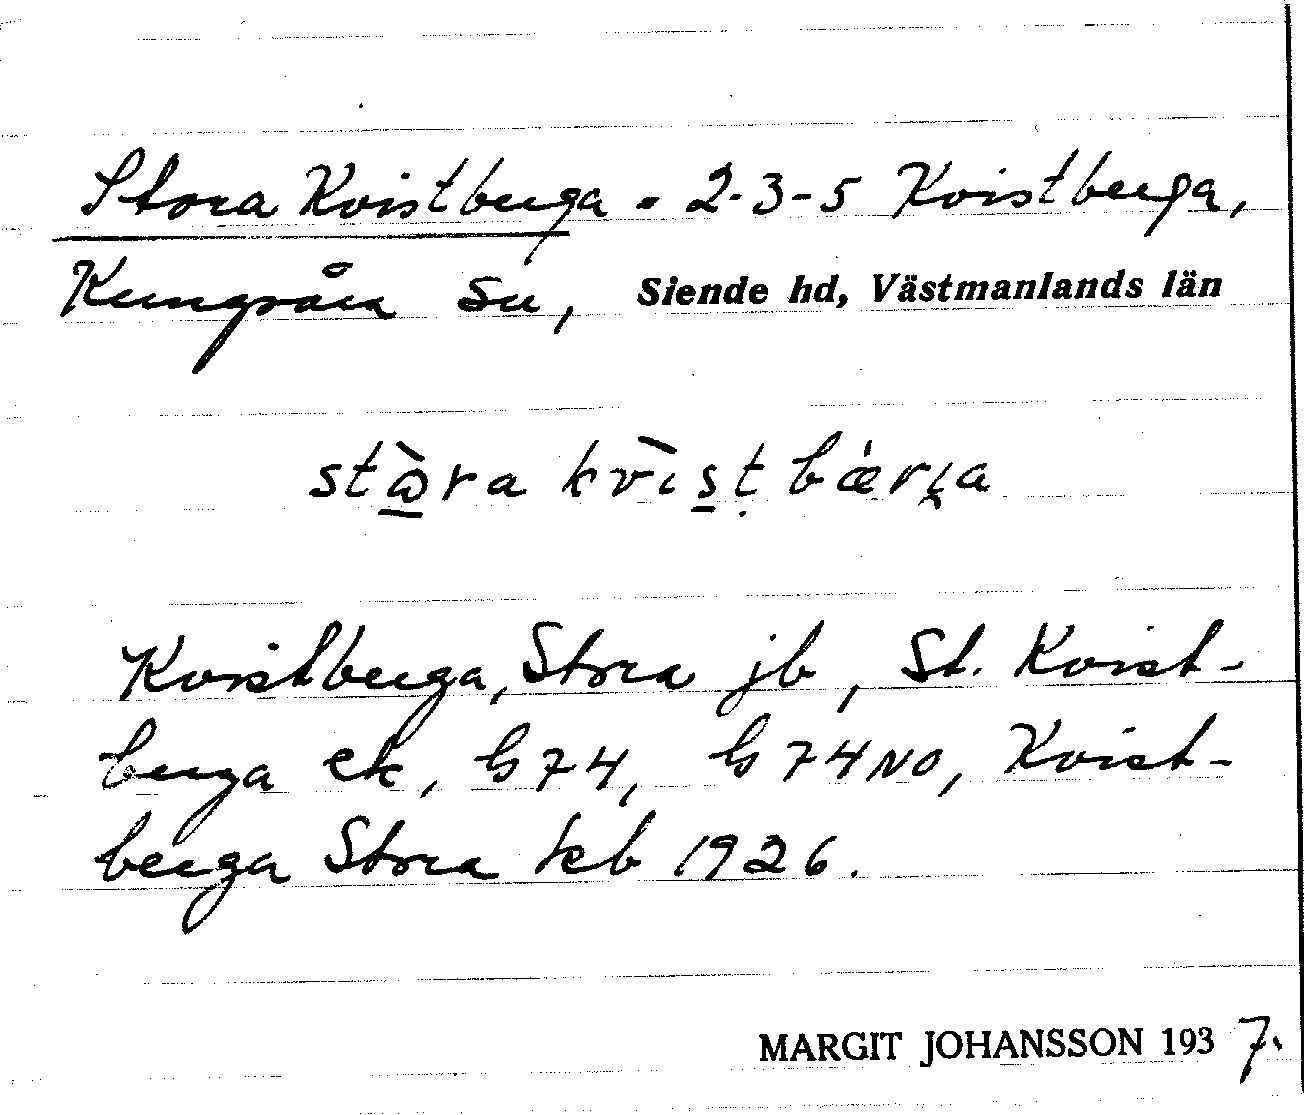 Stora Kvistberga - 2-3-5 Kvistberga,
Kungsåra sn, Siende hd, Västmanlands län
stɷ̀ra kvis̱tbærɩ̨a
Kvistberga, Stora jb, St. Kvist-
berga ek, G74, G74NO, Kvist-
berga Stora tkb 1926.
MARGIT JOHANSSON 1937.